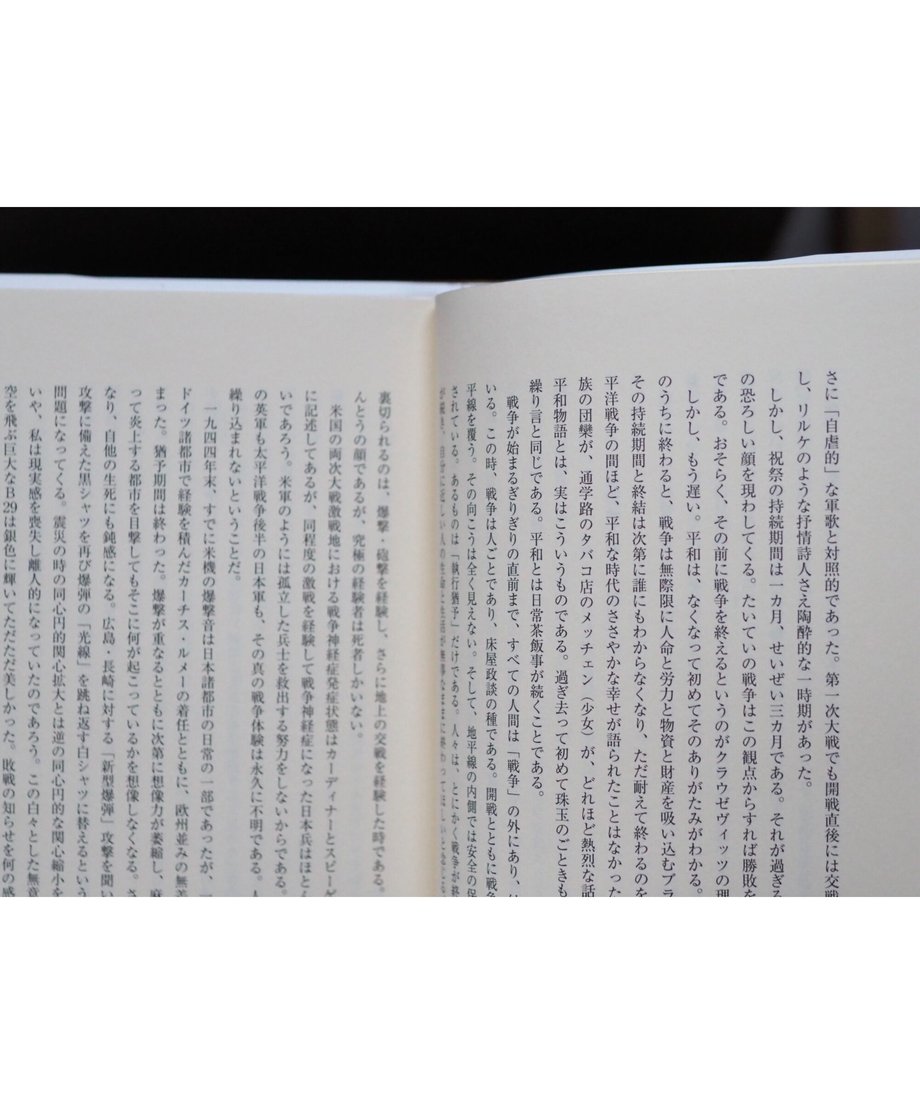 さに「自虐的」な軍歌と対照的であった。第一次大戦でも開戦直後には交戦
し、リルケのような抒情詩人さえ陶酔的な一時期があった。
しかし、祝祭の持続期間は一カ月、せいぜい三カ月である。それが過ぎる
の恐ろしい顔を現わしてくる。たいていの戦争はこの観点からすれば勝敗を
である。おそらく、その前に戦争を終えるというのがクラウゼヴィッツの理
しかし、もう遅い。平和は、なくなって初めてそのありがたみがわかる。
のうちに終わると、戦争は無際限に人命と労力と物資と財産を吸い込むブラ
その持続期間と終結は次第に誰にもわからなくなり、ただ耐えて終わるのを
平洋戦争の間ほど、平和な時代のささやかな幸せが語られたことはなかった
族の団欒が、通学路のタバコ店のメッチェン（少女）が、どれほど熱烈な話
平和物語とは、実はこういうものである。過ぎ去って初めて珠玉のごときも
繰り言と同じである。平和とは日常茶飯事が続くことである。
戦争が始まるぎりぎりの直前まで、すべての人間は「戦争」の外にあり、
いる。この時、戦争は人ごとであり、床屋政談の種である。開戦とともに戦争
平線を覆う。その向こうは全く見えない。そして、地平線の内側では安全の保
されている。あるものは「執行猶予」だけである。人々は、とにかく戦争が終
裏切られるのは、爆撃・砲撃を経験し、さらに地上の交戦を経験した時である。
んとうの顔であるが、究極の経験者は死者しかいない。
米国の両次大戦激戦地における戦争神経症発症状態はカーディナーとスピーゲ
に記述してあるが、同程度の激戦を経験して戦争神経症になった日本兵はほとん
いであろう。米軍のようには孤立した兵士を救出する努力をしないからである。
の英軍も太平洋戦争後半の日本軍も、その真の戦争体験は永久に不明である。人
繰り込まれないということだ。
一九四四年末、すでに米機の爆撃音は日本諸都市の日常の一部であったが、
ドイツ諸都市で経験を積んだカーチス・ルメーの着任とともに、欧州並みの無差
まった。猶予期間は終わった。爆撃が重なるとともに次第に想像力が萎縮し、麻
って炎上する都市を目撃してもそこに何が起こっているかを想像しなくなる。さ
なり、自他の生死にも鈍感になる。広島・長崎に対する「新型爆弾」攻撃を聞い
攻撃に備えた黒シャツを再び爆弾の「光線」を跳ね返す白シャツに替えるという
問題になってくる。震災の時の同心円的関心拡大とは逆の同心円的な関心縮小を
いや、私は現実感を喪失し離人的になっていたのであろう。この白々とした無意
空を飛ぶ巨大なB29は銀色に輝いてただただ美しかった。敗戦の知らせを何の感